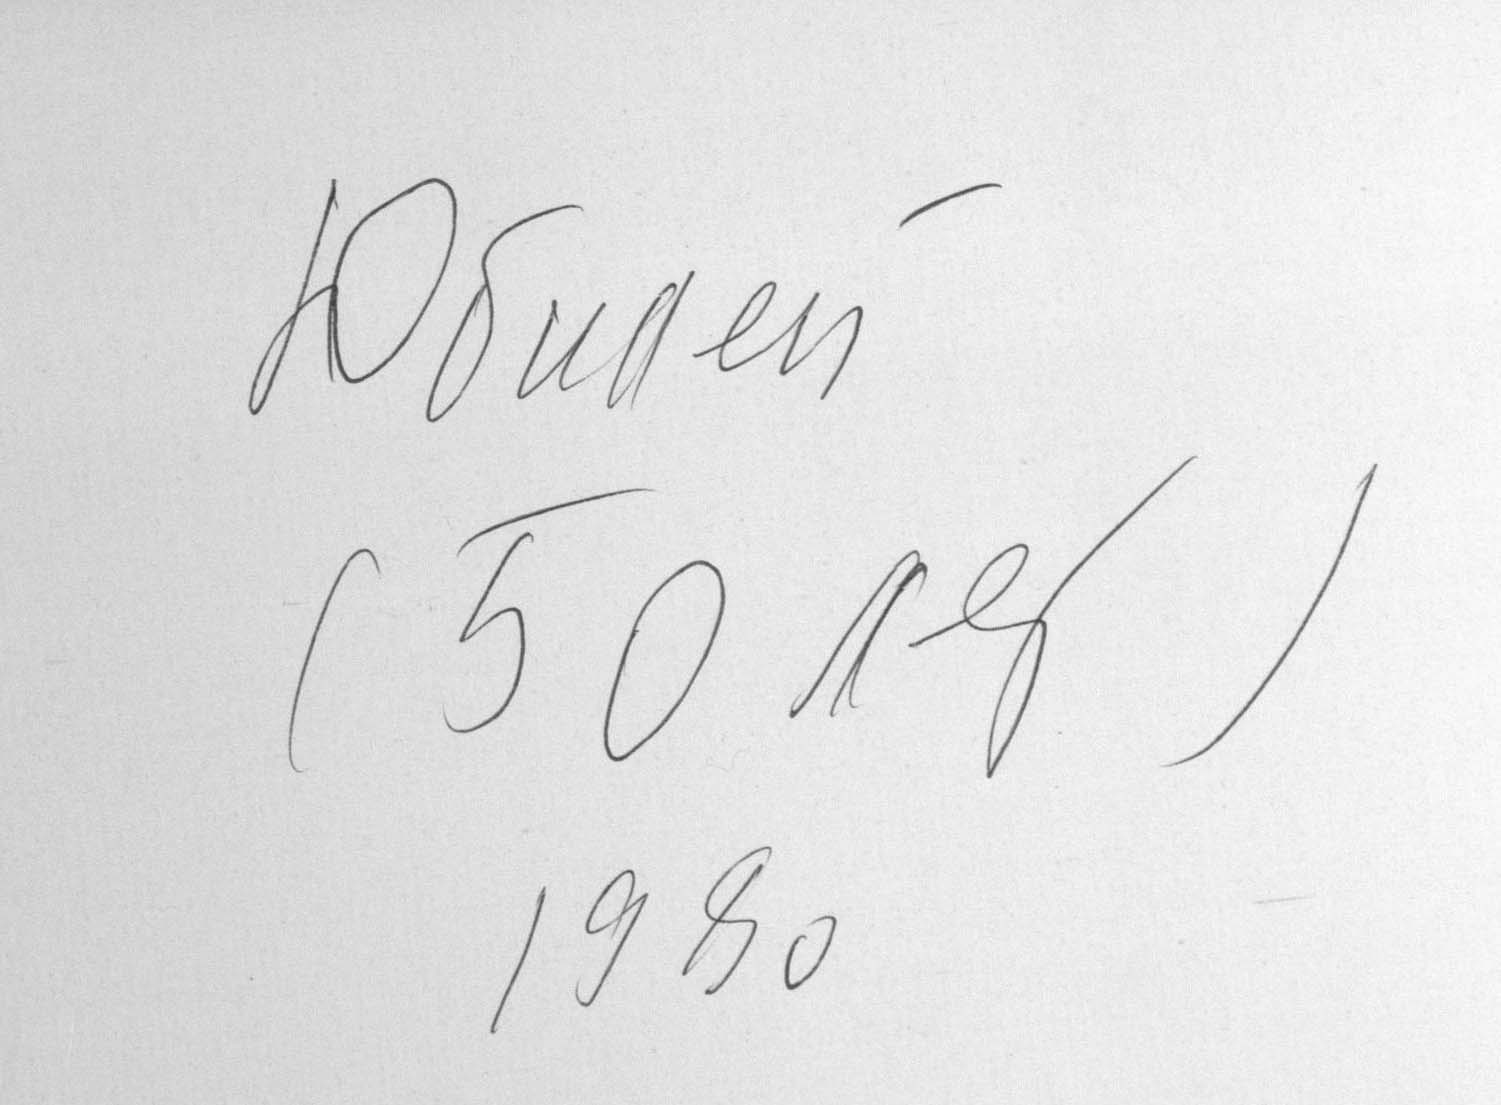 Юбилей
(50 лет)
1980